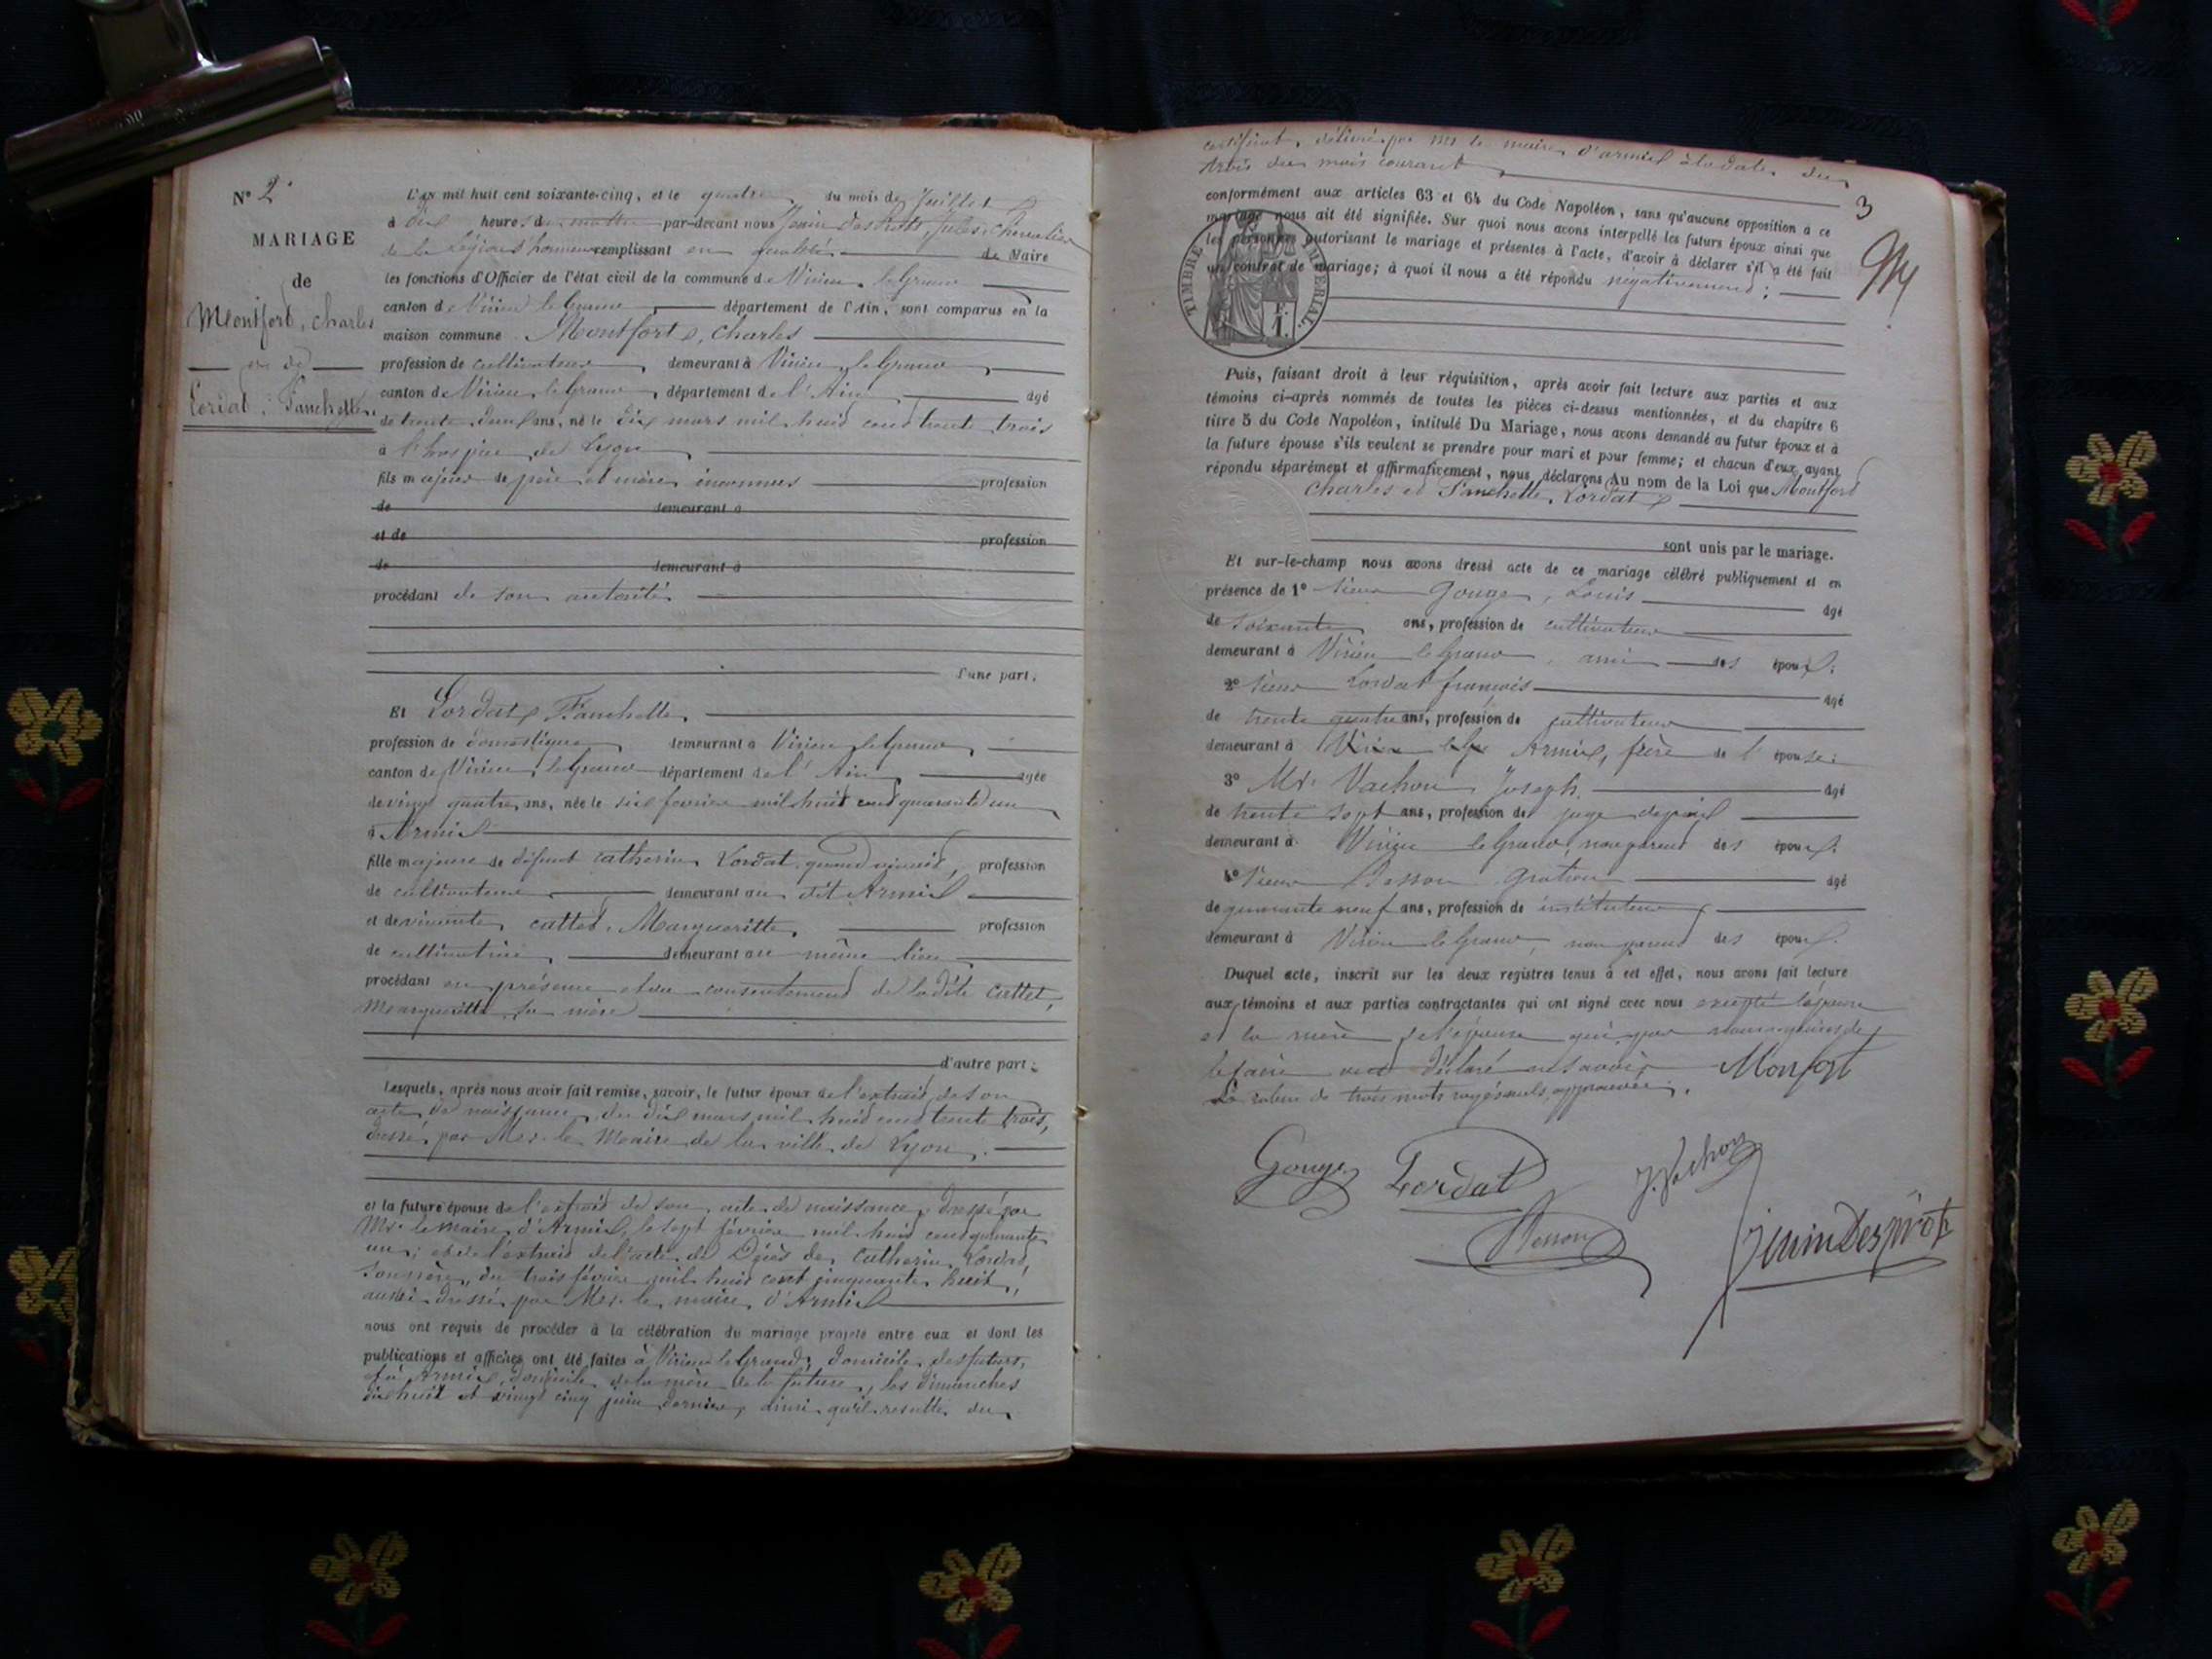 N° 2.
MARIAGE
de
Montford, charles
et de
Lordat, Fanchette
L'an mil huit cent soixante-cinq, et le quatre du mois de Juillet
à dix heures du matin par-devant nous Jenin Desprots, Jules, Chevalier
de la Légion d'honneur remplissant en qualité de Maire
les fonctions d'Officier de l'état civil de la commune de Virieu le Grand
canton de Virieu le Grand département de l'Ain, sont comparus en la
maison commune Montfort, charles
profession de cultivateur, demeurant à Virieu le Grand,
canton de Virieu le Grand, département de l'Ain âgé
de trente deux ans, né le dix mars mil huit cent trente trois
à l'hospice de Lyon
fils majeur de père et mère inconnus profession
de demeurant à
et de profession
de demeurant à
procédant de son autorité
d'une part.
Et Lordat, Fanchette,
profession de domestique demeurant à Virieu le Grand,
canton de Virieu le Grand département de l'Ain, agée
de vingt quatre ans, née le six février mil huit cent quarante un
à Armix
fille majeure de défunt catherin Lordat, quand vivait, profession
de cultivateur demeurant au dit Armix
et de vivante cattet, Margueritte, profession
de cultivatrice, demeurant au même lieu
procédant en présence et du consentement de la dite cattet,
Margueritte sa mère
d'autre part;
Lesquels, après nous avoir fait remise, savoir, le futur époux de l'extrait de son
acte de naissance, du dix mars mil huit cent trente trois,
dressé par Mr. le Maire de la ville de Lyon.
et la future épouse de l'extrait de son acte de naissance, dressé par
Mr. le Maire d'Armix, le sept février mil huit cent quarante
un; et de l'extrait de l'acte de Décès de Catherin Lordat,
son père, du trois février mil huit cent cinquante huit,
aussi dressé par Mr. le maire d'Armix
nous ont requis de procéder à la célébration du mariage projeté entre eux et dont les
publications et affiches ont été faites à Virieu le Grand, domicile des futurs,
et à Armix, domicile de la mère de la future, les dimanches
dix huit et vingt cinq juin dernier, ainsi qu'il resulte du
certificat, délivré par Mr le maire d'armix à la date du
trois du mois courant
3
conformément aux articles 63 et 64 du Code Napoléon, sans qu'aucune opposition à ce
mariage nous ait été signifiée. Sur quoi nous avons interpellé les futurs époux ainsi que
les personnes autorisant le mariage et présentes à l'acte, d'avoir à déclarer s'il a été fait
un contrat de mariage; à quoi il nous a été répondu négativement;
TIMBRE IMPÉRIAL
F.
1.
Puis, faisant droit à leur réquisition, après avoir fait lecture aux parties et aux
témoins ci-après nommés de toutes les pièces ci-dessus mentionnées, et du chapitre 6
titre 5 du Code Napoléon, intitulé Du Mariage, nous avons demandé au futur époux et à
la future épouse s'ils veulent se prendre pour mari et pour femme; et chacun d'eux ayant
répondu séparément et affirmativement, nous déclarons Au nom de la Loi que Montfort
charles et Fanchette, Lordat
sont unis par le mariage.
Et sur-le-champ nous avons dressé acte de ce mariage célébré publiquement et en
présence de 1° sieur Gouge, Louis âgé
de soixante ans, profession de cultivateur
demeurant à Virieu le Grand, ami des époux.
2° sieur Lordat françois âgé
de trente quatre ans, profession de cultivateur
demeurant à Virieu le Gr Armix, frère de l'épouse.
3° Mr. Vachon, Joseph. âgé
de trente sept ans, profession de juge de paix
demeurant à Virieu le Grand, non parent des époux.
4° sieur Besson Gratien âgé
de quarante neuf ans, profession de instituteur
demeurant à Virieu le Grand, non parent des époux.
Duquel acte, inscrit sur les deux registres tenus à cet effet, nous avons fait lecture
aux témoins et aux parties contractantes qui ont signé avec nous excepté l'épouse
et la mère de l'épouse qui, par nous requises de
le faire ont déclaré ne savoir. Monfort
La rature de trois mots rayés nuls approuvée.
Gouge Lordat J. Vachon
Besson
Jenin Desprots